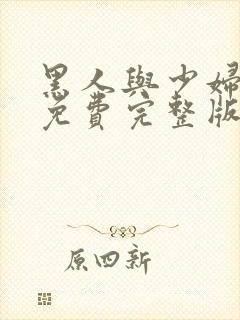 黑人與少婦
免費完整版
原四新